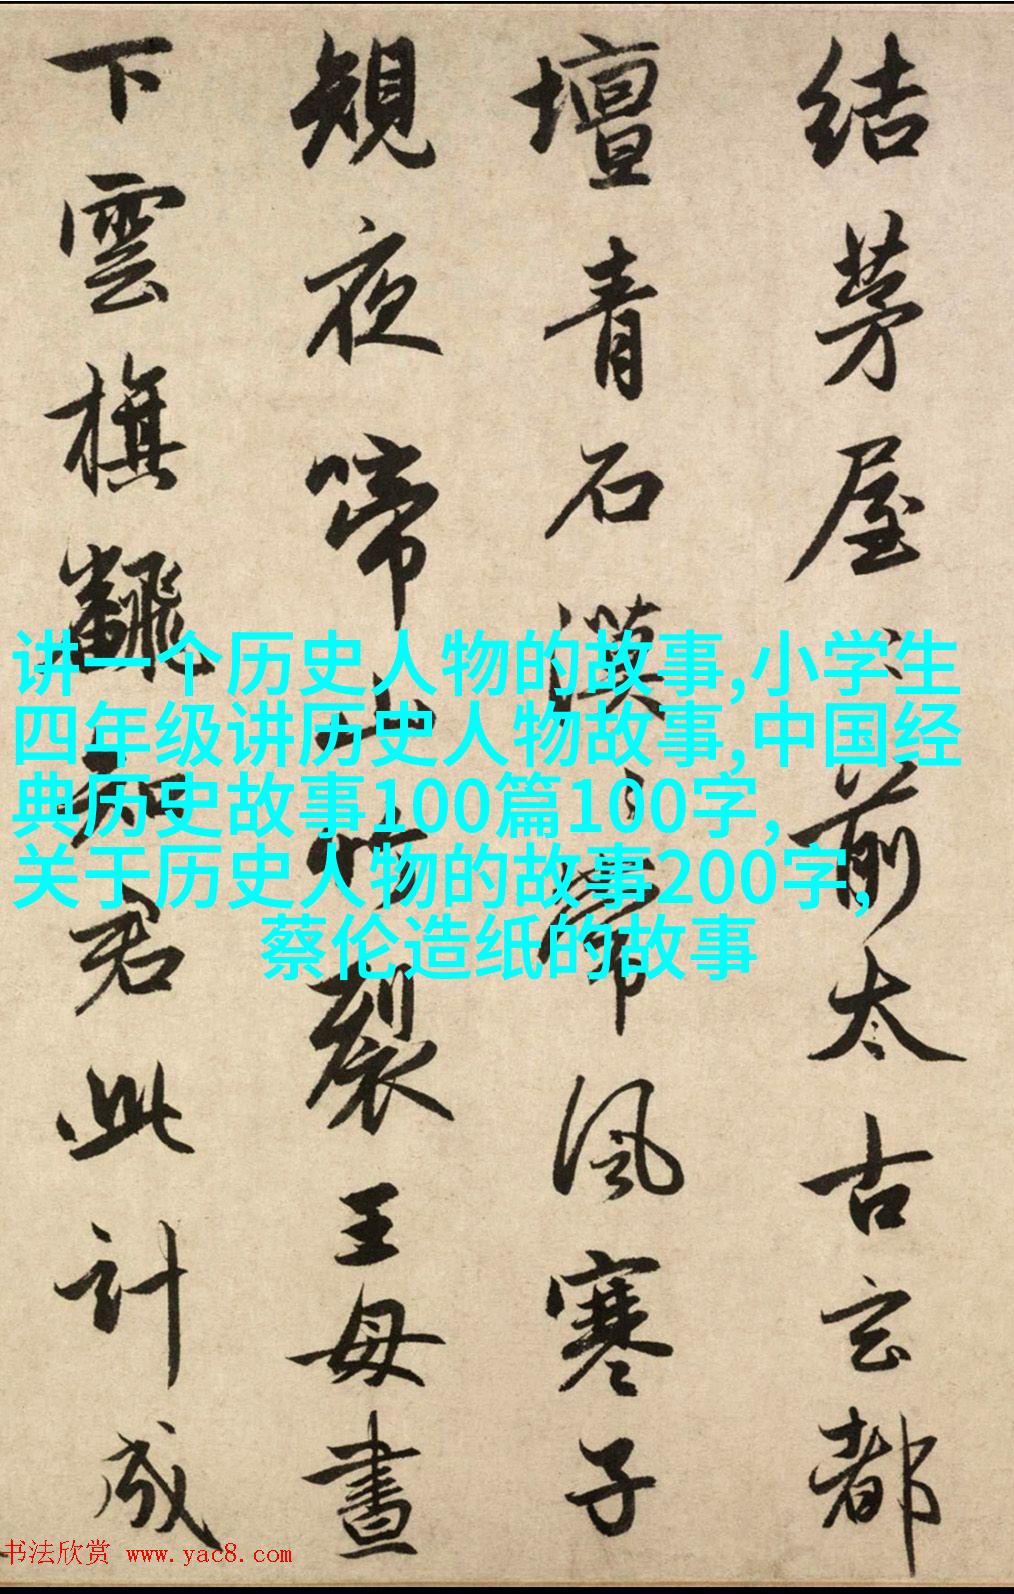 结茅屋〻前太古玄都
壇青石漠〻常風寒子
規夜啼山竹裂王母晝
下雲旗飜知君此計成
讲一个历史人物的故事,小学生
四年级讲历史人物故事,中国经
典历史故事100篇100字,
关于历史人物的故事200字,
蔡伦造纸的故事
书法欣赏 www.yac8.com